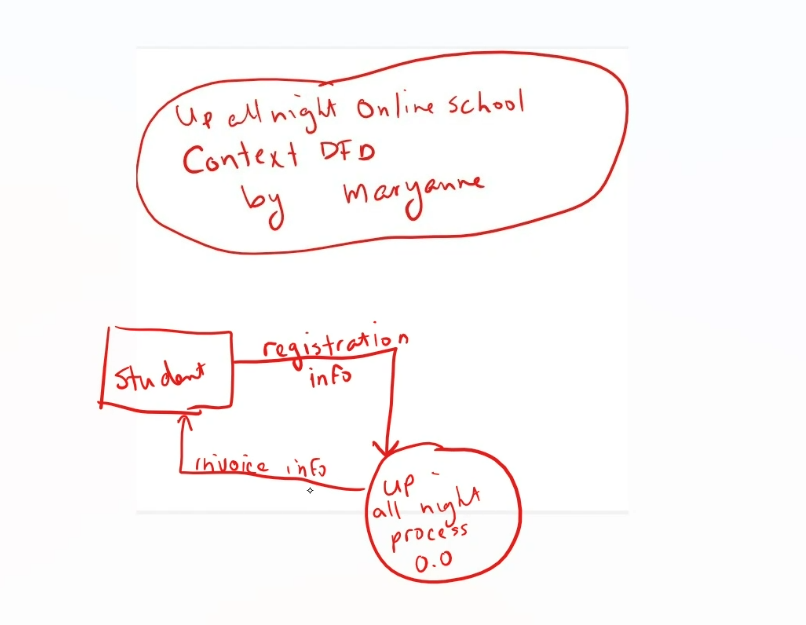 Up all night Online school
Context DFD
by Maryanne
Student
registration
info
invoice info
up
all night
process
0.0